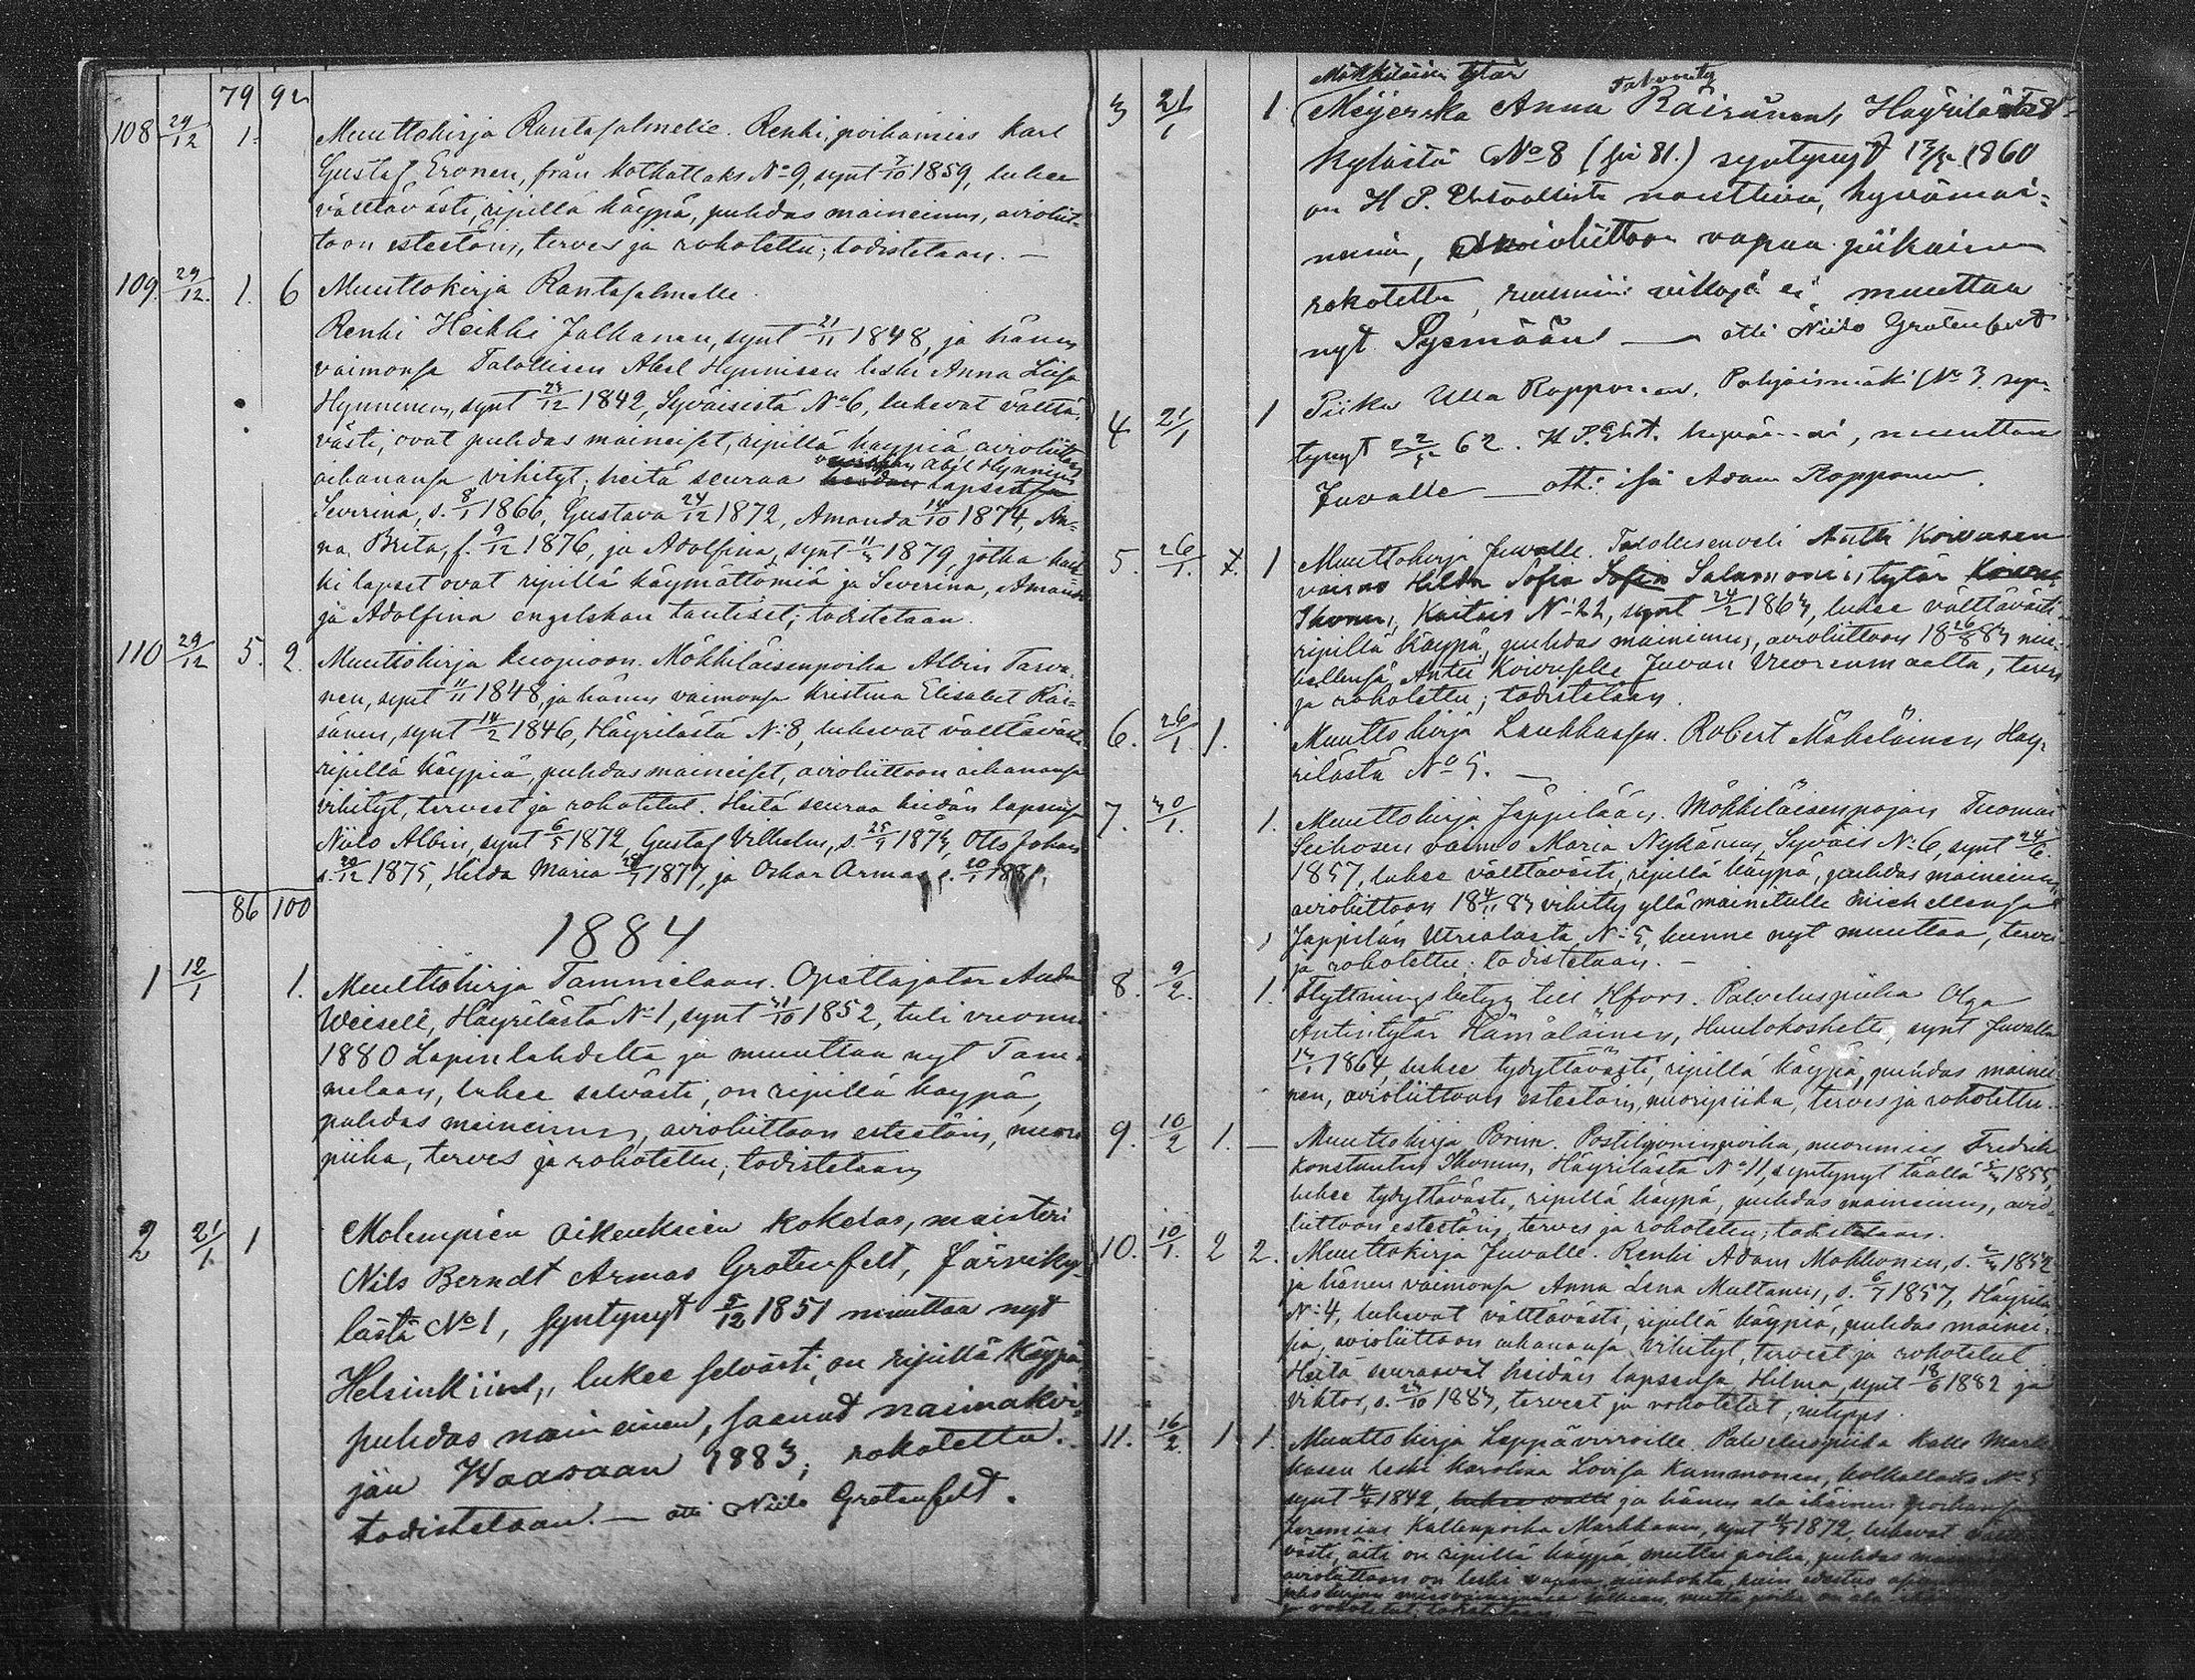 79 92
108 29/12 1. Muuttokirja Rantasalmelle. Renki, poikamies Karl
Gustaf Eronen, från Kotkatlaks No 9, synt 7/10 1859, lukee
välttävästi, ripillä käypä, puhdas maineinen, avioliit-
toon esteetöin, terves ja rokotettu; todistetaan. —
109. 29/12. 1. 6 Muuttokirja Rantasalmelle.
Renki Heikki Jalkanen, synt 21/11 1848, ja hänen
vaimonsa Talollisen Abel Hynnisen leski Anna Liisa
Hynninen, synt 23/12 1842, Syväisistä No 6, lukevat välttä-
västi, ovat puhdas maineiset, ripillä käypiä, avioliittoon
aikanansa vihityt; heitä seuraa Abel Hynnisen
lapset
Severina, s. 8/1 1866, Gustava 24/12 1872, Amanda 14/10 1874, An-
na Brita, f. 9/12 1876, ja Adolfina, synt 11/3 1879 jotka kaik-
ki lapset ovat ripillä käymättömiä ja Severina, Amanda
ja Adolfina engelskan tautiset; todistetaan.
110 29/12 5. 2. Muuttokirja Kuopioon. Mökkiläisenpoika Albin Tarva-
nen, synt 11/11 1848, ja hänen vaimonsa Kristina Elisabet Räi-
sänen, synt 14/2 1846, Häyrilästä No 8, lukevat välttäväst.
ripillä käypiä, puhdas maineiset, avioliittoon aikanansa
vihityt, terveet ja rokotetut. Heitä seuraa heidän lapsensa
Niilo Albin, synt 6/5 1872, Gustaf Vilhelm, s. 25/9 1873, Otto Johan
s. 20/12 1875, Hilda Maria 1877, ja Oskar Armas s. 20/1 1881.
86 100
1884
1 12/1 1. Muuttokirja Tammelaan. Opettajatar Auda
Weisell, Häyrilästä No 1, synt 31/10 1852, tuli vuonna
1880 Lapinlahdelta ja muuttaa nyt Tam-
melaan, lukee selvästi, on ripillä käypä,
puhdas maineinen, avioliittoon esteetöin, nuori
piika, terves ja rokotettu; todistetaan
2 21/1 1 Molempien oikeuksien kokelas, maisteri
Nils Berndt Armas Grotenfelt, Järviky-
lästä No 1, syntynyt 5/12 1851 muuttaa nyt
Helsinkiin, lukee selvästi, on ripillä käypä,
puhdas maineinen, saanut naimakir-
jän Waasaan 1883; rokotettu.
todistetaan. — otti Niilo Grotenfelt.
Mökkiläisen tytär
3 21/1 1 Meijerska Anna Räisänen, Häyrilä
kylästä No 8 (siv 81.) syntynyt 1860
on H. P. Ehtoollista nauttiva, hyvämai-
neinen, avioliittoon vapaa piikainen
rokotettu, ruumiin vikoja ei, muuttaa
nyt Pyemään — otti Niilo Grotenfelt
4 21/1 1 Piika Ulla Ropponen, Pohjoismäki No 3. syn-
tynyt 62. H. P. Eht. , muuttaa
Juvalle — otti isä Adam Ropponen.
5. 26/1. 1 Muuttokirja Juvalle. Talollisenveli Antti Koivusen
vaimo Hilda Sofia Salamonintytär
Ihonen, Kaitais No 22, synt 24/2 1863, lukee välttävästi
ripillä käypä, puhdas maineinen, avioliittoon 18 26/8 83 mie-
hellensä Antti Koivuselle Juvan Vuorenmaalta, terves
ja rokotettu; todistetaan.
6. 26/1 1. Muuttokirja Laukkaasen. Robert Mäkeläinen Häy-
rilästä No 5. —
7. 30/1. 1. Muuttokirja Jäppilään. Mökkiläisenpojan Tuomas
Seikosen vaimo Maria Nykänen, Syväis No 6, synt 24/6
1857, lukee välttävästi, ripillä käypä, puhdas maineinen,
avioliittoon 18 4/11 83 vihitty yllä mainitulle miehellensä
Jäppilän No 5, kunne nyt muuttaa, terves
ja rokotettu; todistetaan. —
8. 9/2. 1. Flyttningsbetyg till Hfors. Palveluspiika Olga
Antintytär Hämäläinen, Huutokoskelta, synt Juvalla
1864, lukee tydyttävästi, ripillä käypä, puhdas mainei-
nen, avioliittoon esteetöin, nuoripiika, terves ja rokotettu.
9. 10/2 1. — Muuttokirja Poriin. Postiljoninpoika, nuorimies Fredrik
Konstantin Ihonen, Häyrilästä No 11, syntynyt täällä 1855,
lukee tydyttävästi, ripillä käypä, puhdas maineinen, avio-
liittoon esteetöin, terves ja rokotettu; todistetaan.
10. 10/1. 2 2. Muuttokirja Juvalle. Renki Adam Makkonen, s. 1852
ja hänen vaimonsa Anna Lena Multanen, s. 6/7 1857, Häyrilä
No 4, lukevat välttävästi, ripillä käypiä, puhdas mainei-
sia, avioliittoon aikanansa vihityt, terveet ja rokotetut
Heitä seuraavat heidän lapsensa Hilma, synt 18/6 1882 ja
Viktor, s. 23/10 1883, terveet ja rokotetut;
11. 16/2. 1 1. Muuttokirja Leppävirroille. Palveluspiika Kalle Mark-
kasen leski Karolina Lovisa Kummonen, Kotkatlaks No 5
synt 4/4 1842, ja hänen ala ikäinen poikansa
Jeremias Kallenpoika Markkanen, synt 1872, lukevat
västi, äiti on ripillä käypä, mutta poika, puhdas
avioliittoon on leski vapaa
mutta poika on ala
ja rokotetut; todistetaan —